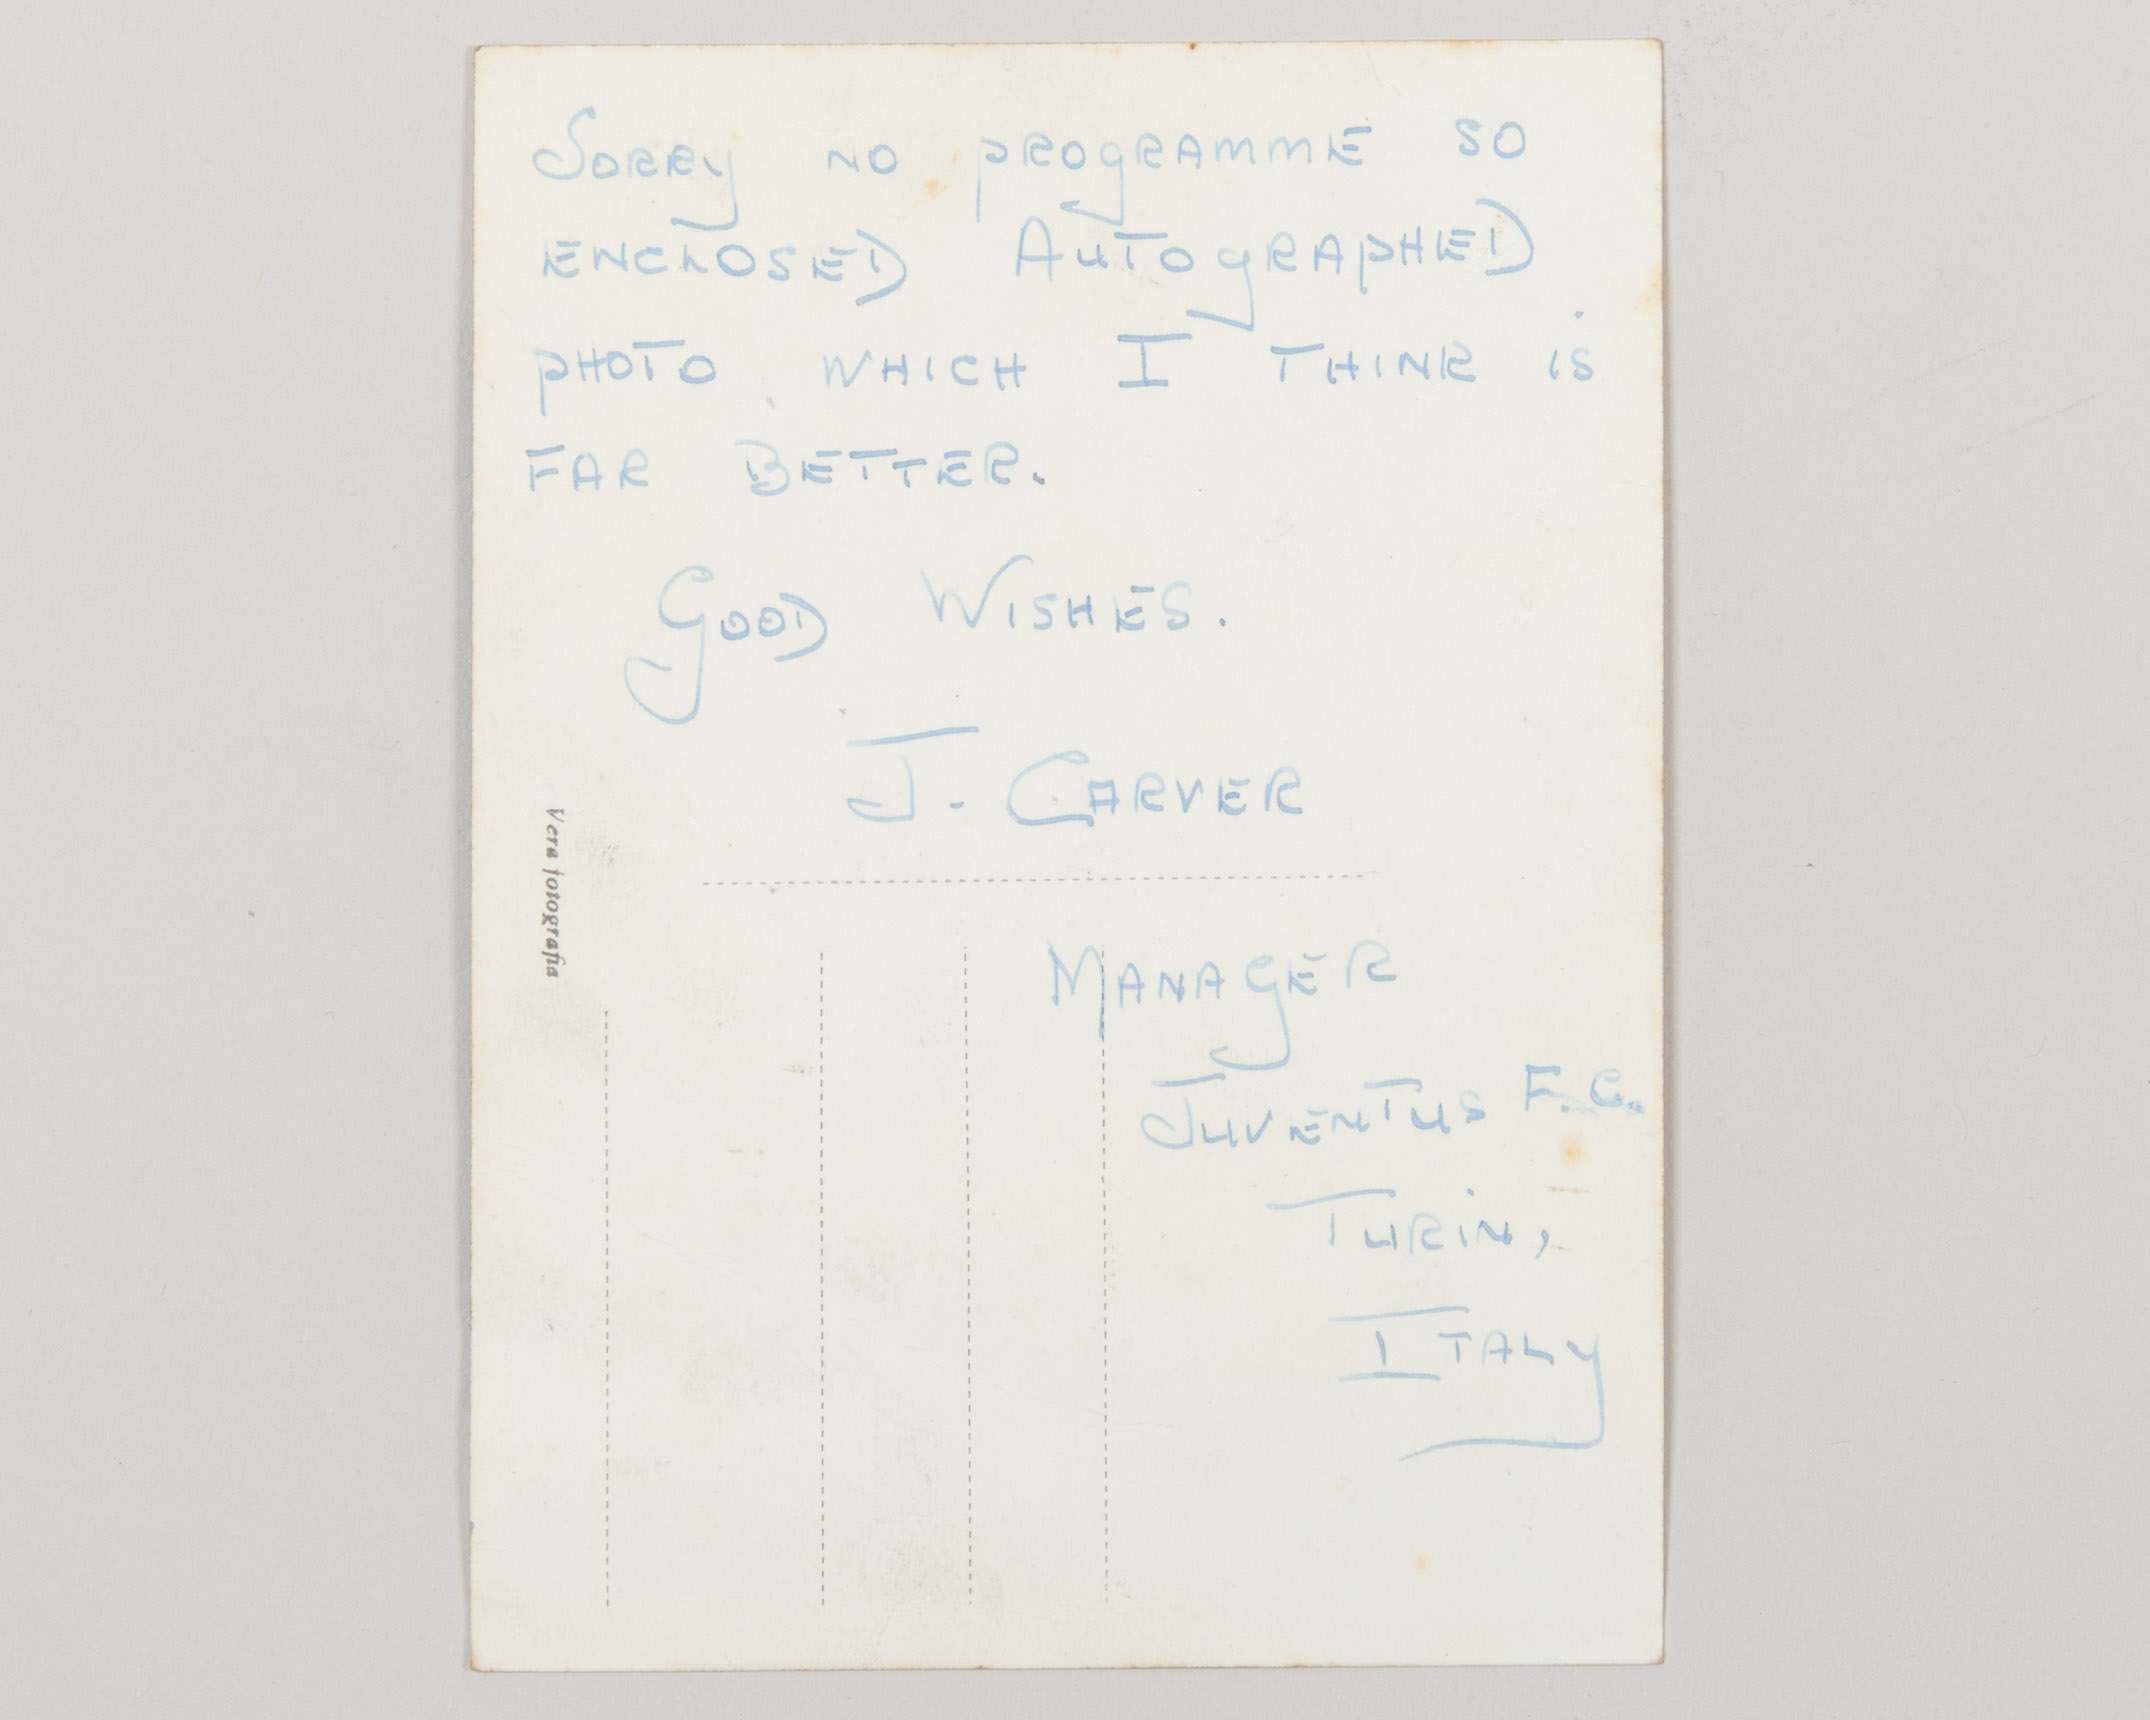 Sorry no programme so
enclosed Autographed
photo which I think is
far Better.
Good Wishes.
J. Carver
Vera fotografia
Manager
Juventus F.C.
Turin,
Italy